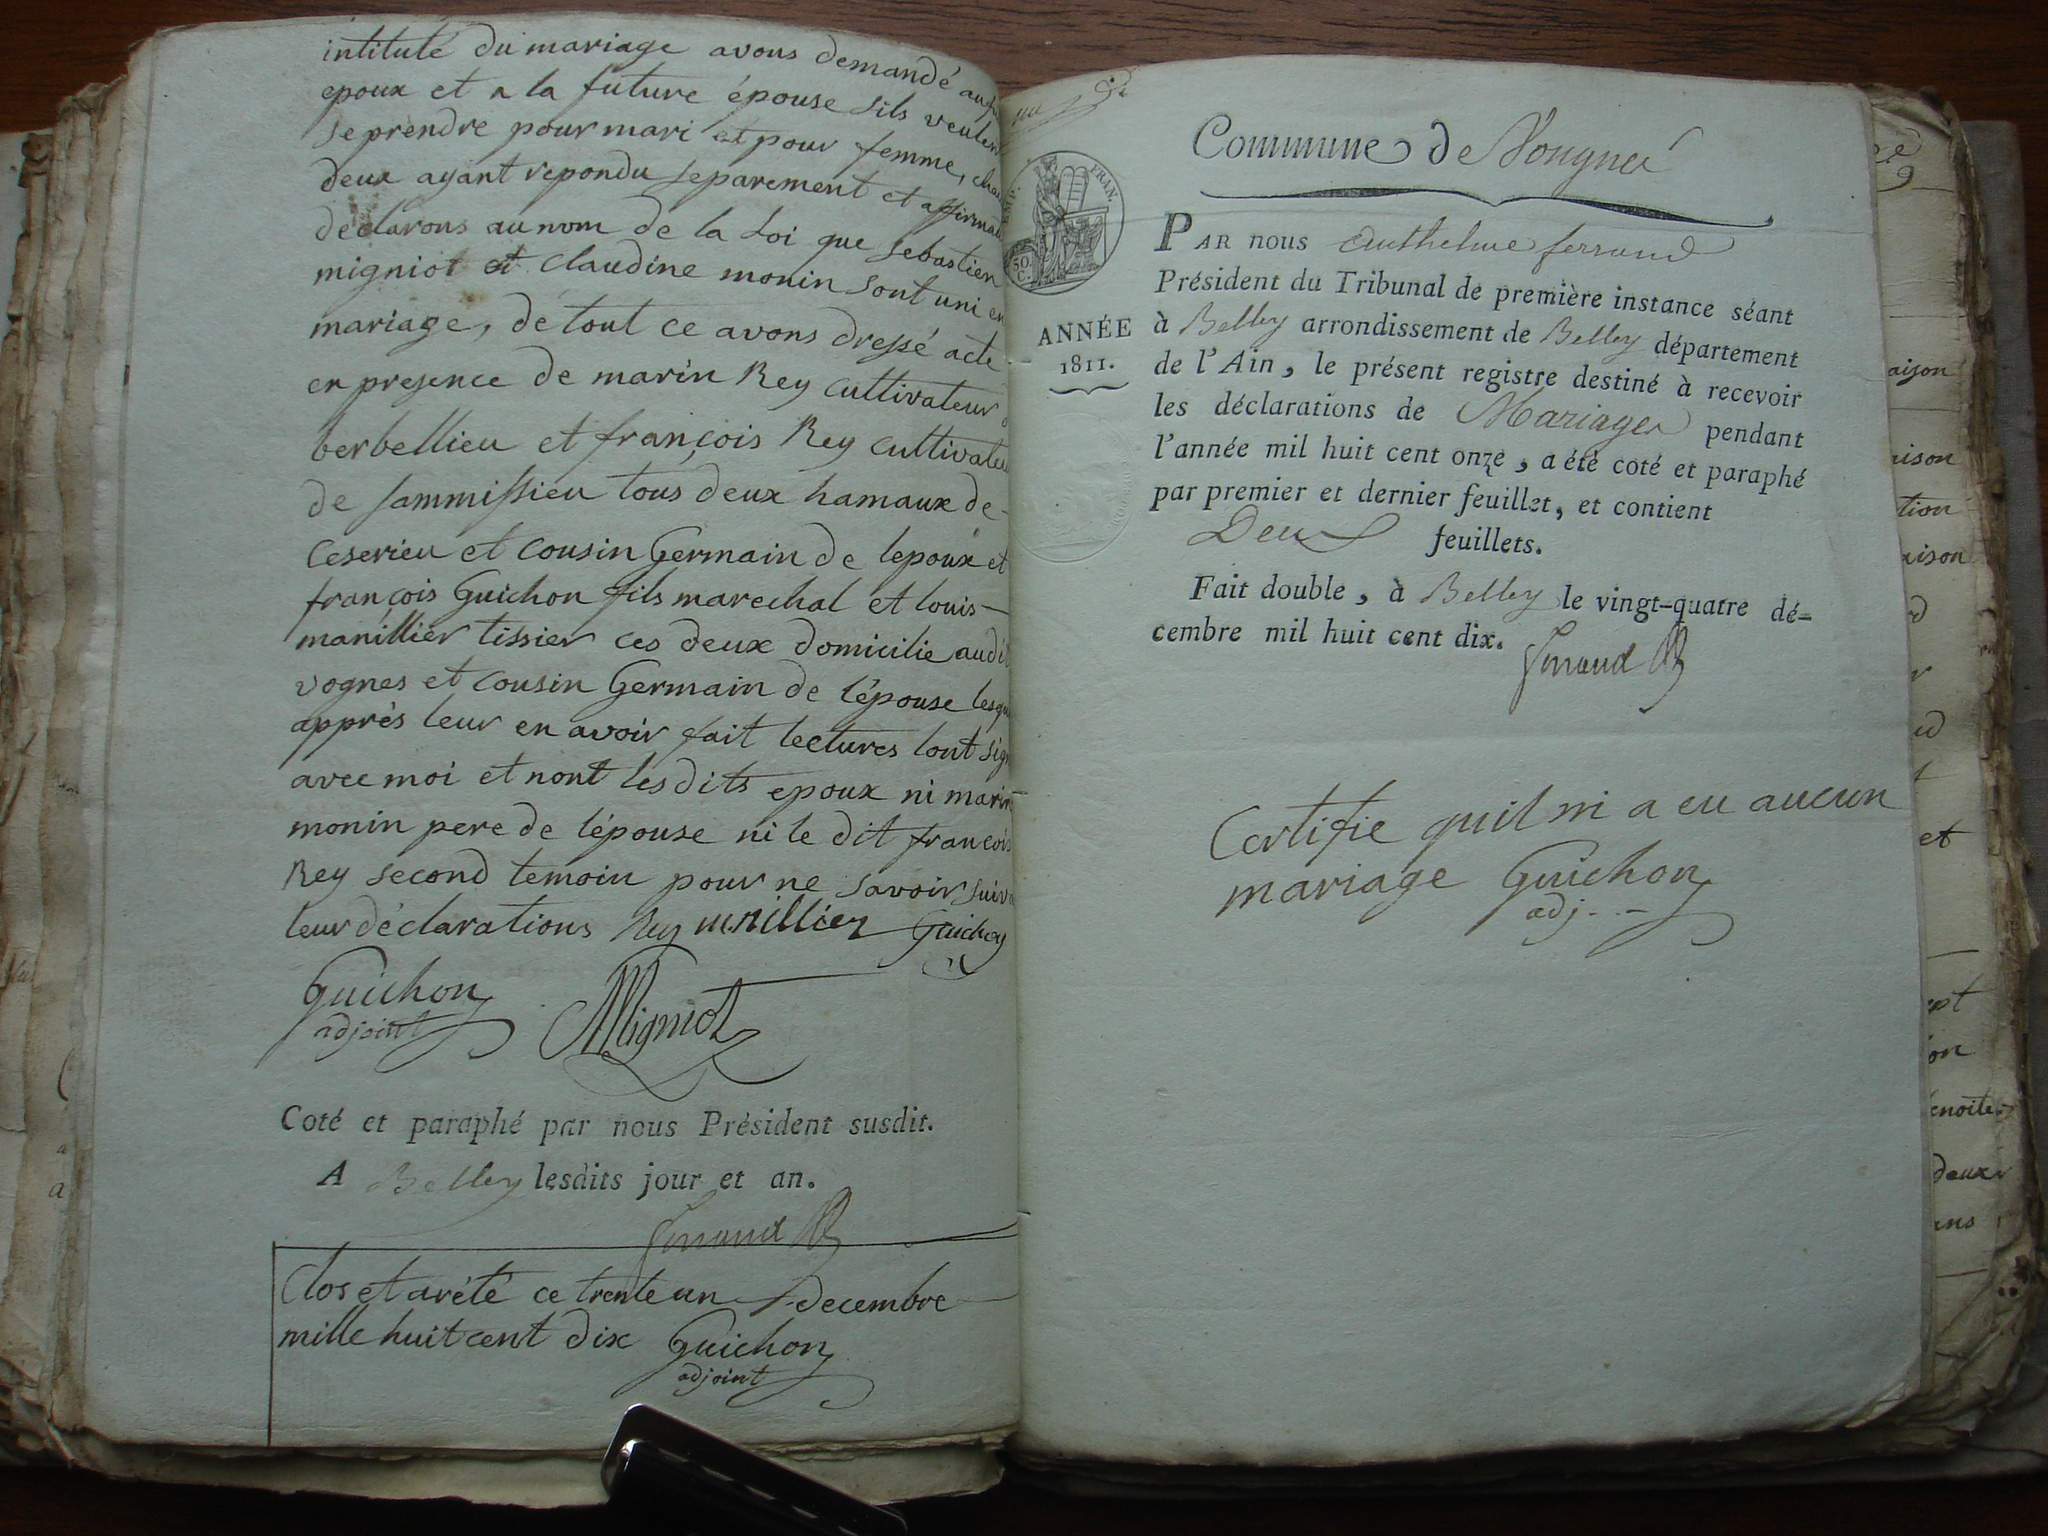 intitulé du mariage avous demandé au
epoux et a la future épouse sils veulen
se prendre pour mari et pour femme, cha
deux ayant repondu separement et affirma
declarons au nom de la Loi que sebastien
migniot et claudine monin sont uni en
mariage, de tout ce avons dressé acte
en presence de marin Rey cultivateur
berbellieu et françois Rey cultivate
de sammissieu tous deux hamaux de
ceserieu et cousin Germain de lepoux et
françois Guichon fils marechal et louis
manillier tissier ces deux domicilie audi
vognes et cousin Germain de lépouse lesqu
apprés leur en avoir fait lectures lont sig
avec moi et nont les dits epoux ni marin
monin pere de lépouse ni le dit francois
Rey second temoin pour ne savoir suiva
leur déclarations Rey manillier Guichon
Guichon Migniot
adjoint
Coté et paraphé par nous Président susdit.
A Belley lesdits jour et an.
ferrand
Clos et arété ce trente un decembre
mille huit cent dix Guichon
adjoint
Commune de Vongnes
FRAN.
50.
C.
ANNÉE
1811.
PAR nous Anthelme ferrand
Président du Tribunal de première instance séant
à Belley arrondissement de Belley département
de l'Ain, le présent registre destiné à recevoir
les déclarations de Mariages pendant
l'année mil huit cent onze, a été coté et paraphé
par premier et dernier feuillet, et contient
Deux feuillets.
Fait double, à Belley le vingt-quatre dé-
cembre mil huit cent dix.
ferrand
Certifie quil ni a eu aucun
mariage Guichon
adj.
aison
aison
tion
aison
et
ept
on
enoite
deux
ans